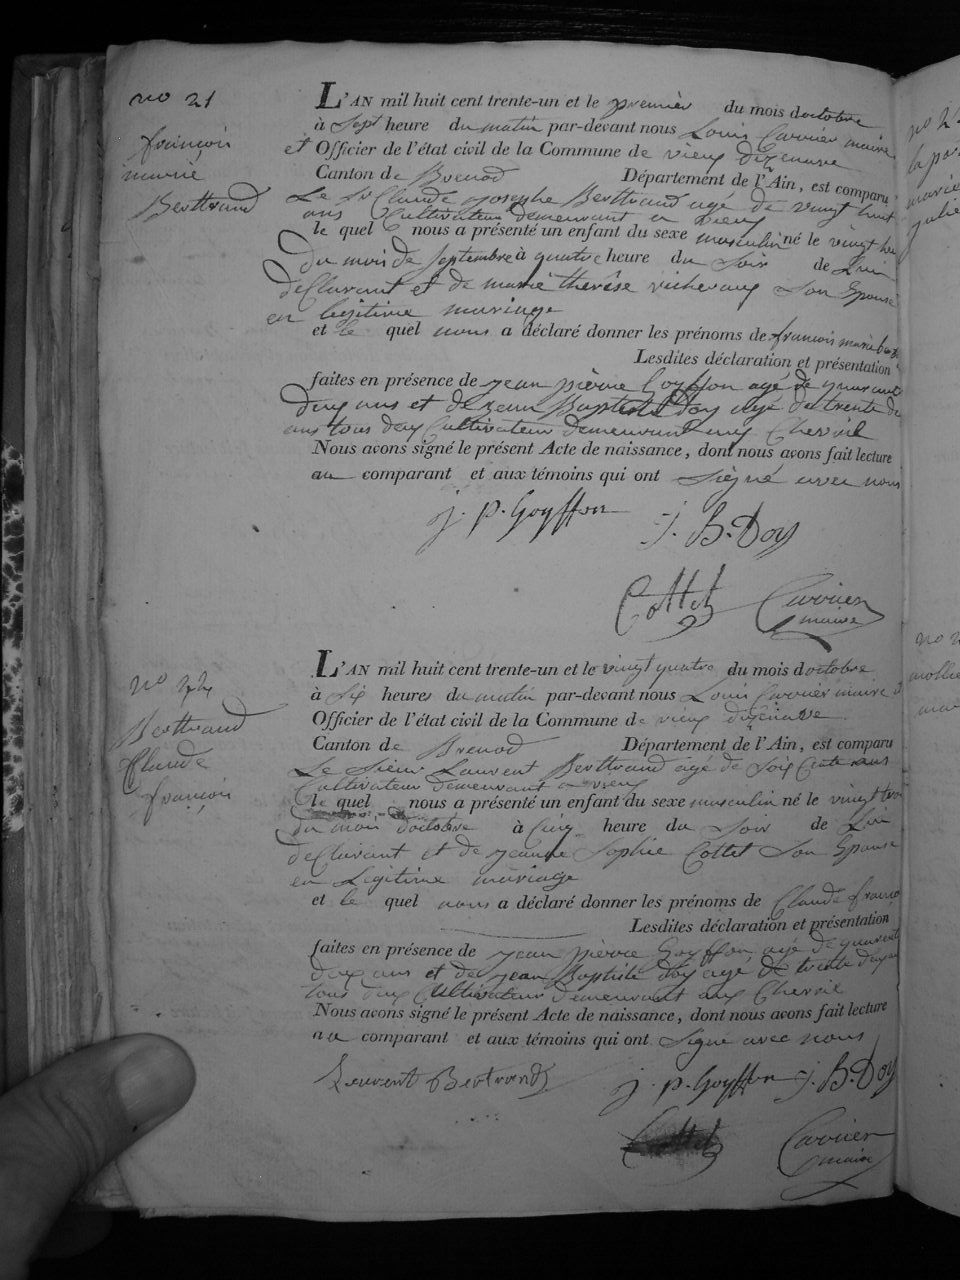 no 21
françois
marie
Berttrand
L'AN mil huit cent trente-un et le premier du mois doctobre
à Sept heure du matin par-devant nous Louis Carrier maire
et Officier de l'état civil de la Commune de vieux dizenave
Canton de Brenod Département de l'Ain, est comparu
Le Sr Claude Josephe Berttrand agé de vingt huit
ans Cultivateur demeurant a vieux
le quel nous a présenté un enfant du sexe masculin né le vingt
du mois de Septembre à quatre heure du Soir de Lui
declarant et de marie thérèse Son Epouse
en legitime mariage
et le quel nous a déclaré donner les prénoms de françois marie
Lesdites déclaration et présentation
faites en présence de jean pierre Goyffon agé de quarante
deux ans et de jean Baptiste Doy agé de trente
ans tous deux Cultivateur demeurant aux
Nous avons signé le présent Acte de naissance, dont nous avons fait lecture
au comparant et aux témoins qui ont Signé avec nous
J. P. Goyffon J. B. Doy
Cottet Carrier
maire
no 22
Berttrand
Claude
françois
L'AN mil huit cent trente-un et le vingt quatre du mois doctobre
à Six heures du matin par-devant nous Louis Carrier maire
Officier de l'état civil de la Commune de vieux dizenave
Canton de Brenod Département de l'Ain, est comparu
Le Sieur Laurent Berttrand agé de
Cultivateur demeurant a vieux
le quel nous a présenté un enfant du sexe masculin né le vingt
du mois doctobre à Cinq heure du Soir de Lui
declarant et de jeanne Sophie Cottet Son Epouse
en Legitime mariage
et le quel nous a déclaré donner les prénoms de Claude
Lesdites déclaration et présentation
faites en présence de jean pierre Goyffon agé de quarente
deux ans et de jean Baptiste Doy agé de trente
tous deux Cultivateur demeurant aux
Nous avons signé le présent Acte de naissance, dont nous avons fait lecture
au comparant et aux témoins qui ont Signe avec nous
Leurent Bertrand J. P. Goyffon J. B. Doy
Cottet Carrier
maire